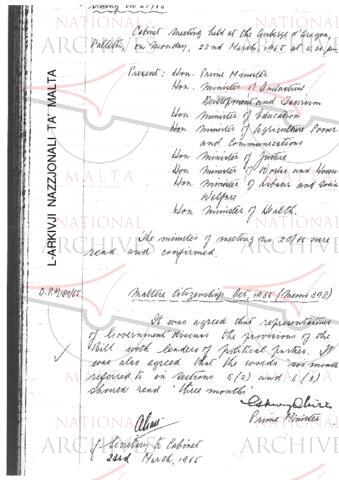 Cabinet meeting held at the Auberge d'Aragon,
Valletta, on Monday, 22nd March, 1965 at
Present: Hon. Prime Minister
Hon. Minister of Industrial
Development and Tourism
Hon Minister of Education
Hon Minister of Agriculture Power
and Communications
Hon Minister of Justice
Hon Minister of Works and
Hon Minister of Labour and Social
Welfare
Hon Minister of Health.
The minutes of meeting no. 20/65 were
read and confirmed.
Maltese Citizenship Act, 1965 (Memo 398)
It was agreed that representatives
of Government discuss the provisions of the
Bill with leaders of political parties. It
was also agreed that the words
referred to in sections 5(2) and
should read "three months"
Prime Minister
f. Secretary to Cabinet
23rd March, 1965
L-ARKIVJI NAZZJONALI TA' MALTA
NATIONAL
ARCHIVES
MALTA